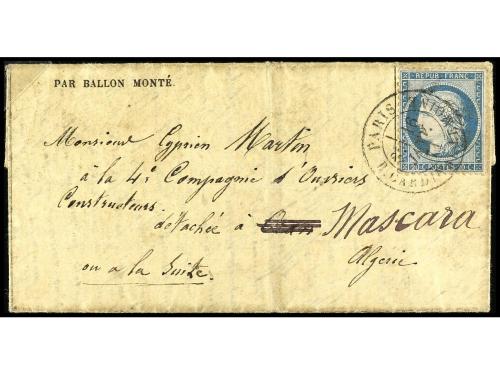 REPUB. FRANC.
PAR BALLON MONTÉ.
PARIS
Monsieur Cyprien Martin
à la 4e Compagnie d'Ouvriers
20 C. POSTES 20 C.
Constructeurs
détachée à Mascara
ou a la Suite.
Algérie